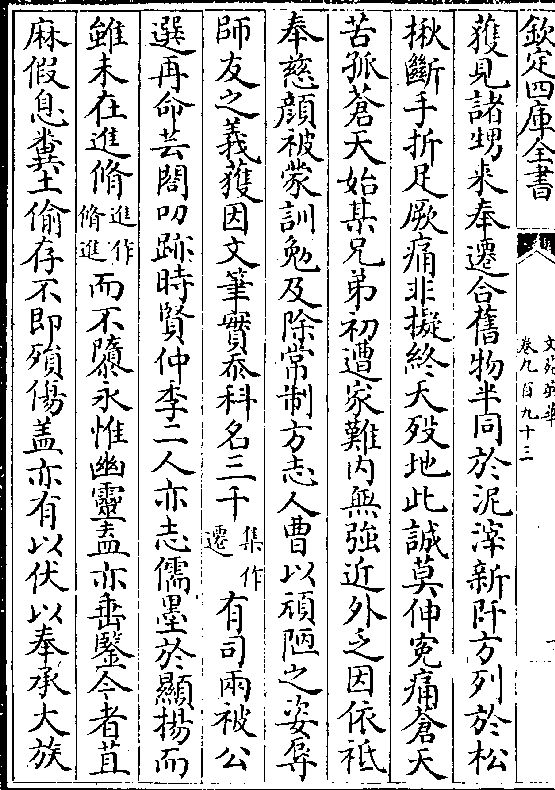 欽定四庫全書
文苑英華
卷九百九十三
獲見諸甥來奉遷合舊物半同於泥滓新阡方列於松
楸斷手折足厥痛非擬終天殁地此誠莫伸冤痛蒼天
苦孤蒼天始某兄弟初遭家難内無強近外乏因依祗
奉慈顔被蒙訓勉及除常制方志人曹以頑陋之姿辱
師友之義獲因文筆實忝科名三干集作遷有司兩被公
選再命芸閣叨跡時賢仲季二人亦志儒墨於顯揚而
雖未在進脩進作脩進而不隳永惟幽靈盖亦垂鑒今者苴
麻假息糞土偷存不即殞傷盖亦有以伏以奉承大族